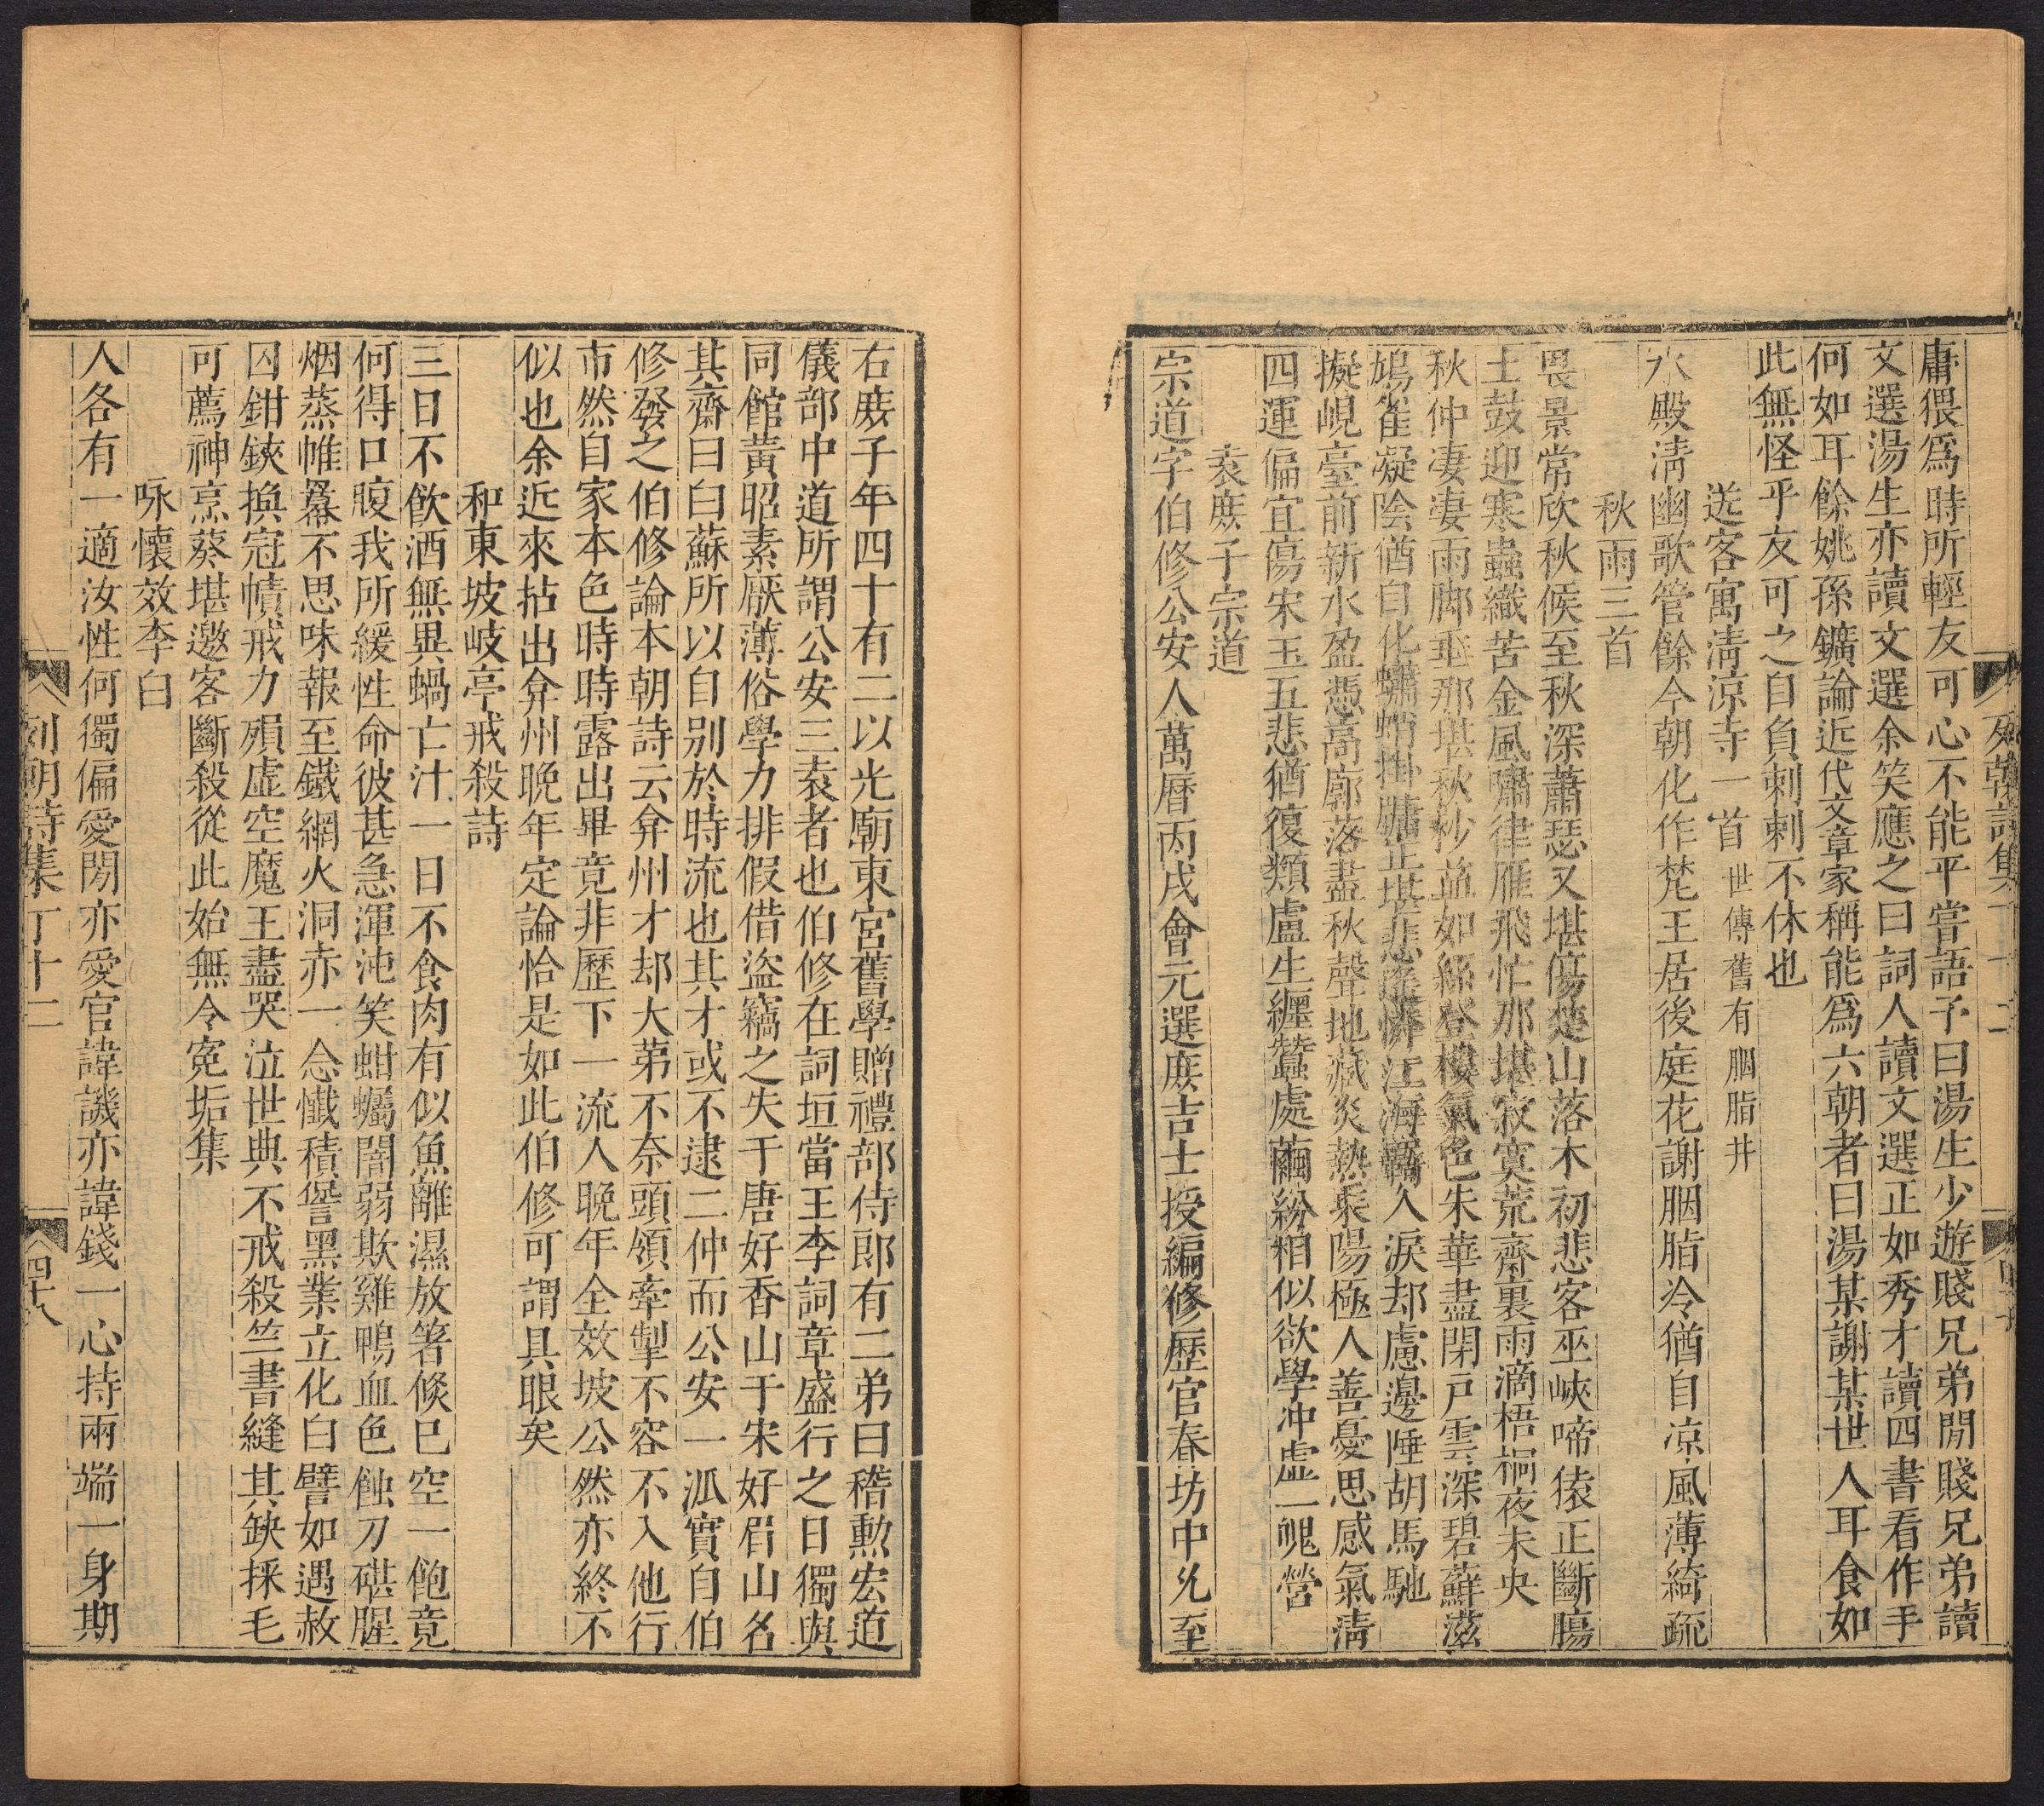 庸猥爲時所輕友可心不能平嘗語予曰湯生少遊賤兄弟閒賤兄弟讀
文選湯生亦讀文選余笑應之曰詞人讀文選正如秀才讀四書看作手
何如耳餘姚孫鑛論近代文章家稱能爲六朝者曰湯某謝某世人耳食如
此無怪乎友可之自負刺刺不休也
送客寓淸涼寺一首 世傳舊有胭脂井
水殿淸幽歌管餘今朝化作梵王居後庭花謝胭脂冷猶自凉風薄綺疏
秋雨三首
畏景常欣秋候至秋深蕭瑟又堪傷楚山落木初悲客巫峽啼猿正斷腸
土鼓迎寒蟲織苦金風嘯律雁飛忙那堪寂寞荒齋裏雨滴梧桐夜未央
秋仲凄凄雨脚垂那堪秋杪益如絲登樓氣色朱華盡閉戸雲深碧蘚滋
鳩雀凝陰猶自化蠨蛸掛牖正堪悲遙憐江海覊人淚却慮邊陲胡馬馳
擬峴臺前新水盈憑高廓落盡秋聲地藏炎熱乘陽極人善憂思感氣淸
四運偏宜傷宋玉五悲猶復類盧生纒蠶處繭紛相似欲學冲虛一䰟營
袁庶子宗道
宗道字伯修公安人萬曆丙戌會元選庶吉士授編修歷官春坊中允至
列朝詩集丁十二
右庶子年四十有二以光廟東宮舊學贈禮部侍郎有二弟曰稽勳宏道
儀部中道所謂公安三袁者也伯修在詞垣當王李詞章盛行之日獨與
同館黃昭素厭薄俗學力排假借盜竊之失于唐好香山于宋好眉山名
其齋曰白蘇所以自别於時流也其才或不逮二仲而公安一派實自伯
修發之伯修論本朝詩云弇州才却大第不奈頭領牽掣不容不入他行
市然自家本色時時露出畢竟非歷下一流人晩年全效坡公然亦終不
似也余近來拈出弇州晩年定論恰是如此伯修可謂具眼矣
和東坡岐亭戒殺詩
三日不飮酒無異蝸亡汁一日不食肉有似魚離濕放箸倐已空一飽竟
何得口腹我所緩性命彼甚急渾沌笑蚶蠣闇弱欺雞鴨血色蝕刀碪腥
烟蒸帷羃不思味報至鐵網火洞赤一念懺積諐黑業立化白譬如遇赦
囚鉗鋏換冠幘戒力殞虛空魔王盡哭泣世典不戒殺竺書縫其缺採毛
可薦神烹葵堪邀客斷殺從此始無令寃垢集
咏懷效李白
人各有一適汝性何獨偏愛閒亦愛官諱譏亦諱錢一心持兩端一身期
列朝詩集丁十二
四十八